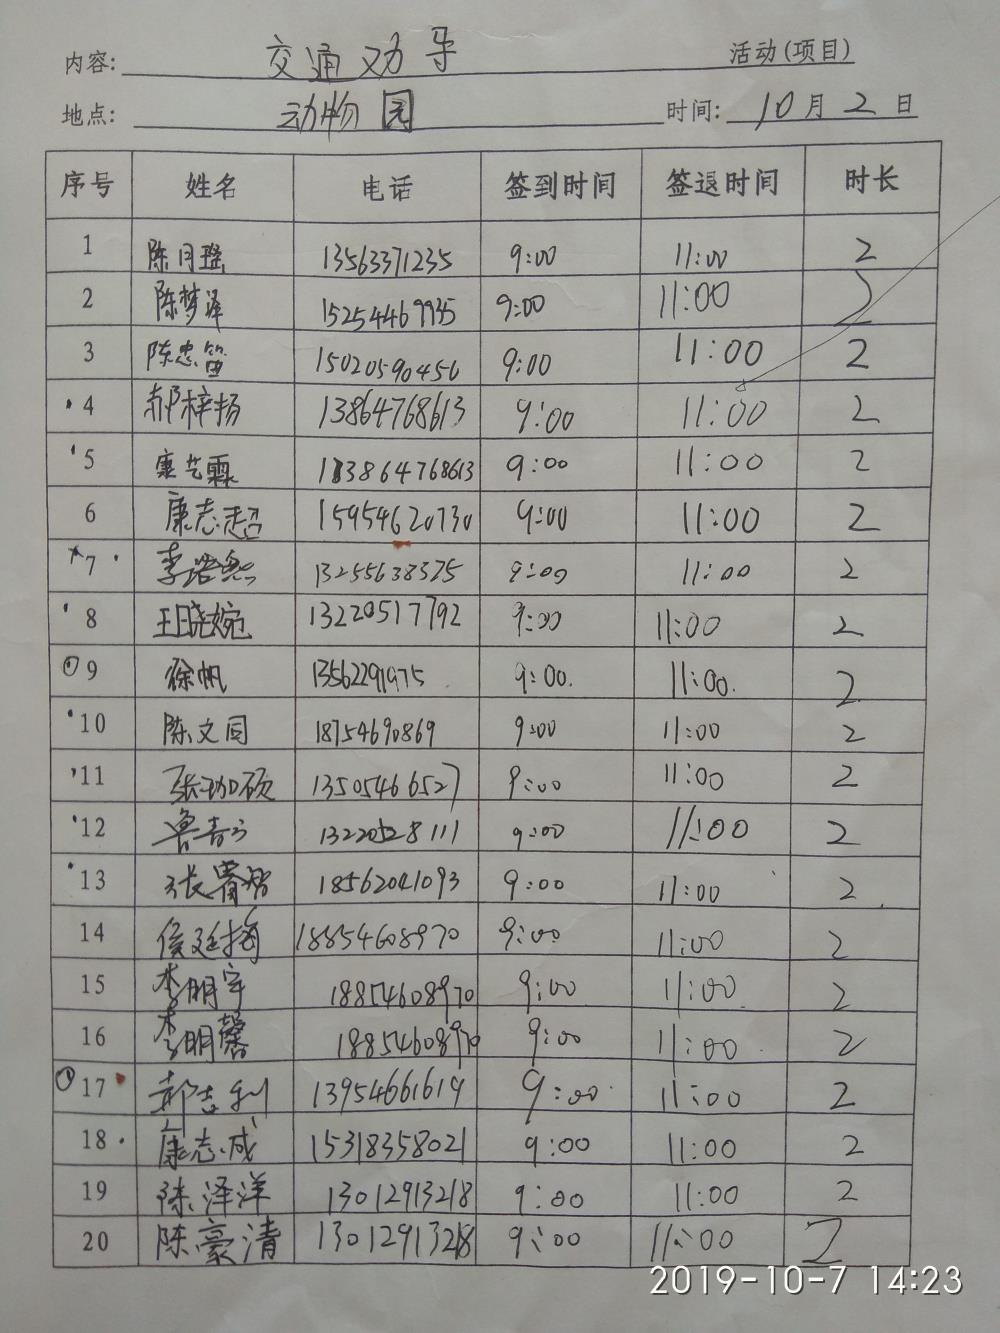 内容: 交通劝导 活动(项目)
地点: 动物园 时间: 10月2日
序号 姓名 电话 签到时间 签退时间 时长
1 陈月瑶 13563371235 9:00 11:00 2
2 陈梦泽 15254469935 9:00 11:00 2
3 陈忠笛 15020590456 9:00 11:00 2
4 郝梓扬 13864768613 9:00 11:00 2
5 康艺霖 13864768613 9:00 11:00 2
6 康志超 15954620730 9:00 11:00 2
7 李浩然 13255638375 9:00 11:00 2
8 王晓婉 13220517792 9:00 11:00 2
9 徐帆 13562291975 9:00 11:00 2
10 陈文国 18754690869 9:00 11:00 2
11 张珈硕 13505466527 9:00 11:00 2
12 鲁青 13220528111 9:00 11:00 2
13 张 18562041093 9:00 11:00 2
14 侯廷梅 18854608970 9:00 11:00 2
15 李明宇 18854608970 9:00 11:00 2
16 李明馨 18854608970 9:00 11:00 2
17 郝吉利 13954661619 9:00 11:00 2
18 康志成 15318358021 9:00 11:00 2
19 陈泽洋 13012913218 9:00 11:00 2
20 陈豪清 13012913218 9:00 11:00 2
2019-10-7 14:23